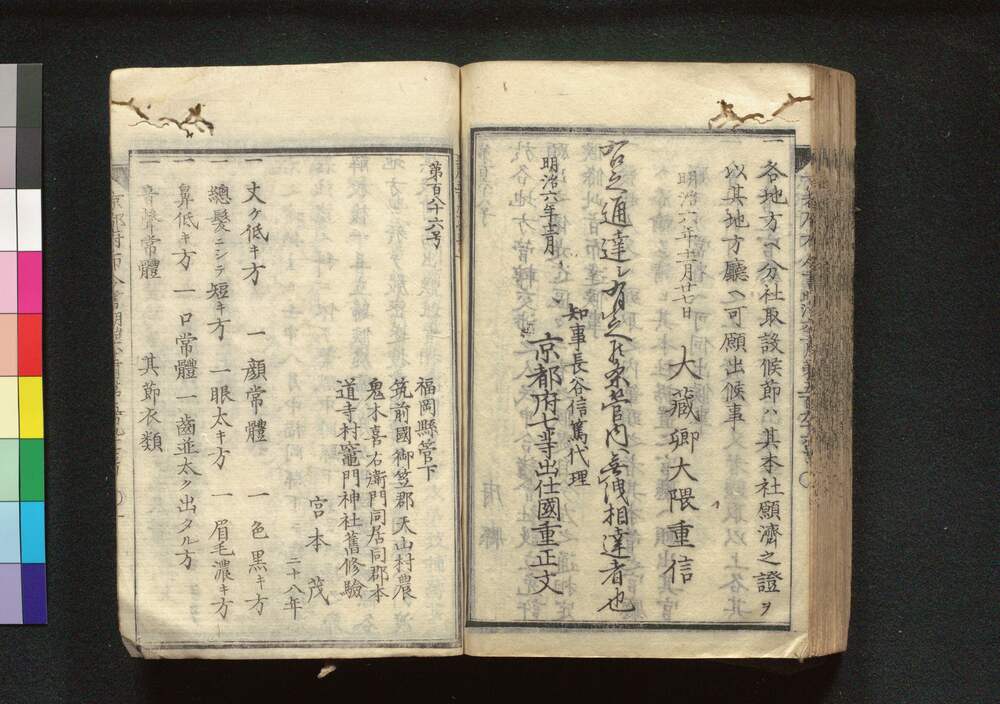 一各地方ヘ分社取設候節ハ其本社願濟之證ヲ
以其地方廳ヘ可願出候事
明治六年十二月廿日
大藏卿大隈重信
右之通達シ有之候条管内無洩相達者也
明治六年十二月
知事長谷信篤代理
京都府七等出仕國重正文
第百八十六号
福岡縣管下
筑前國御笠郡天山村農
鬼木喜右衛門同居同郡本
道寺村竈門神社舊修驗
宮本茂
三十八年
一丈ケ低キ方 一顔常體 一色黒キ方
一總髪ニシテ短キ方 一眼太キ方 一眉毛濃キ方
一鼻低キ方 一口常體 一齒並太ク出タル方
一音聲常體 其節衣類